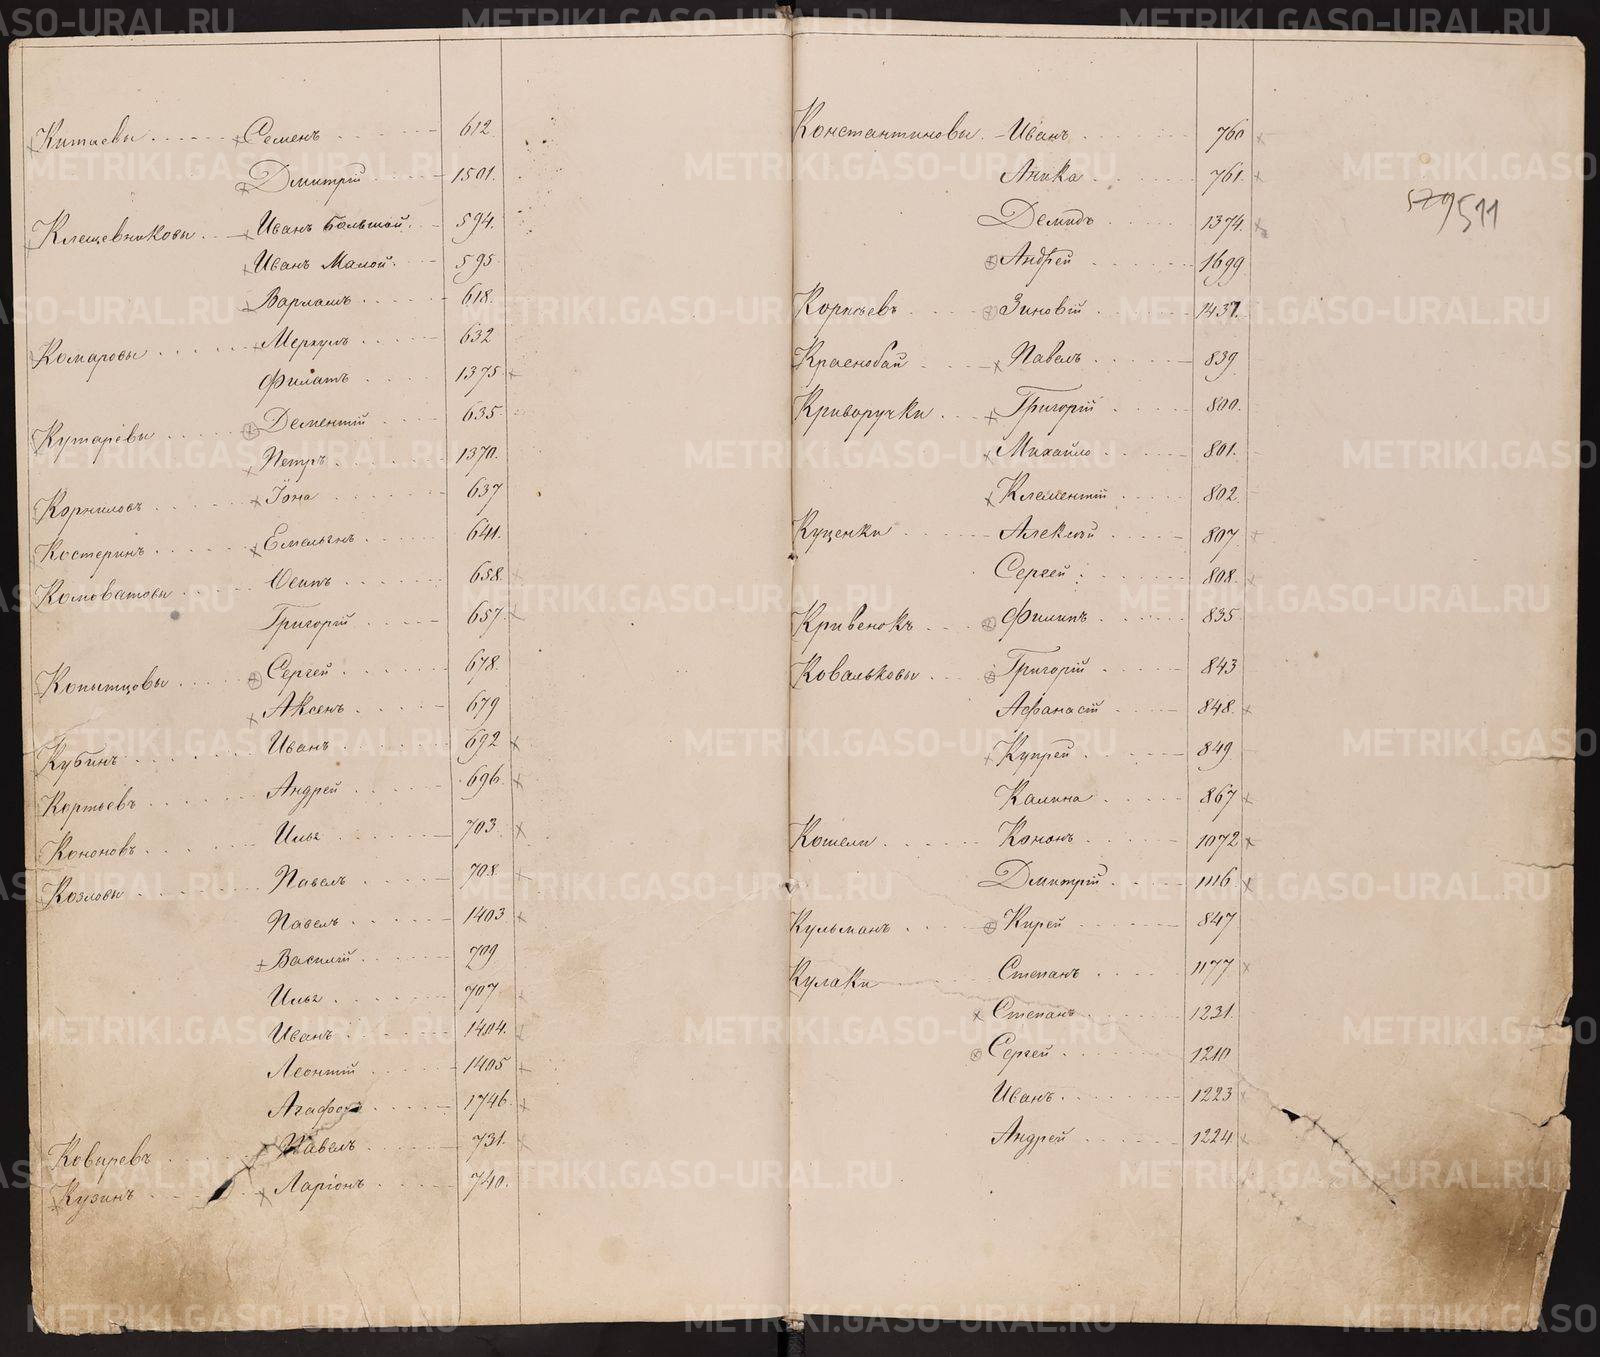 Китаевы Семенъ 612
Дмитрій 1501.
Клещевниковы Иванъ Большой. 594.
Иванъ Малой. 595.
Варламъ 618.
Комаровы Меркулъ 632
Филатъ 1375
Кутаревы Дементій 635
Петръ 1370.
Корниловъ Іона 637
Костеринъ Емельянъ 641.
Коноватовы Осипъ 658.
Григорій 657
Копытцовы Сергей 678.
Аксенъ 679
Кубинъ Иванъ 692
Андрей 696
Кононовъ Илья 703
Козловы Павелъ 708.
Павелъ 1403
Василій 709
Илья 707
Иванъ 1404.
Леонтій 1405
Агафонъ 1746.
Ковыревъ Павелъ 731.
Кузинъ Ларіонъ 740.
Константиновы Иванъ 760
Аника 761.
Демидъ 1374.
Андрей 1699
Корнѣевъ Зиновій 1437.
Краснобай Павелъ 839
Криворучки Григорій 800.
Михайло 801.
Клементій 802
Куценки Алексѣй 807
Сергей 808.
Кривенокъ Филипъ 835
Ковальковы Григорій 843
Афанасій 848.
Купрей 849
Калина 867
Кошели Кононъ 1072
Дмитрій 1116
Кульманъ Кирей 847
Кулаки Степанъ 1177
Степанъ 1231.
Сергей 1210
Иванъ 1223
Андрей 1224
511
METRIKI.GASO-URAL.RU